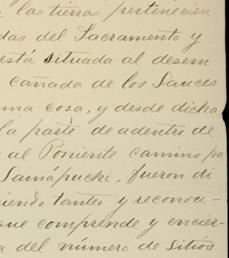 las tierras pertenecien
das del Sacramento y
está situada al desem
cañada de los Sauces
ma cosa, y desde dicha
la parte de adentro de
al Poniente camino pa
Samápuchi, fueron di
iendo tanteo y reconoci-
que comprende y encier-
a del número de Sitios